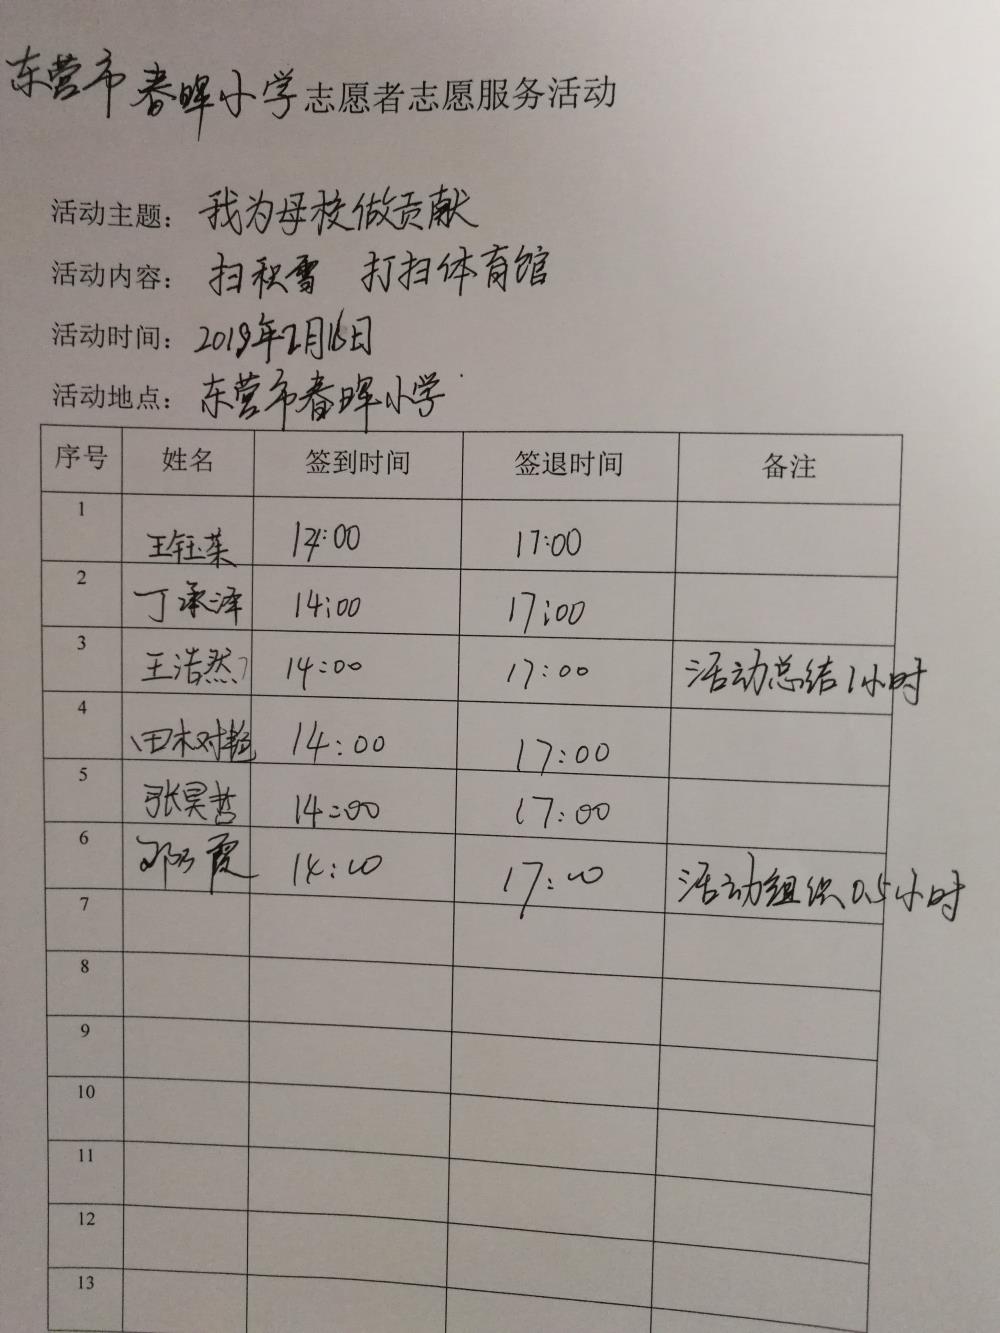 东营市春晖小学志愿者志愿服务活动
活动主题：我为母校做贡献
活动内容：扫积雪 打扫体育馆
活动时间：2019年2月16日
活动地点：东营市春晖小学
序号 姓名 签到时间 签退时间 备注
1 王钰 14:00 17:00
2 丁承泽 14:00 17:00
3 王浩然 14:00 17:00 活动总结1小时
4 14:00 17:00
5 张昊哲 14:00 17:00
6 霞 14:00 17:00 活动组织0.5小时
7
8
9
10
11
12
13